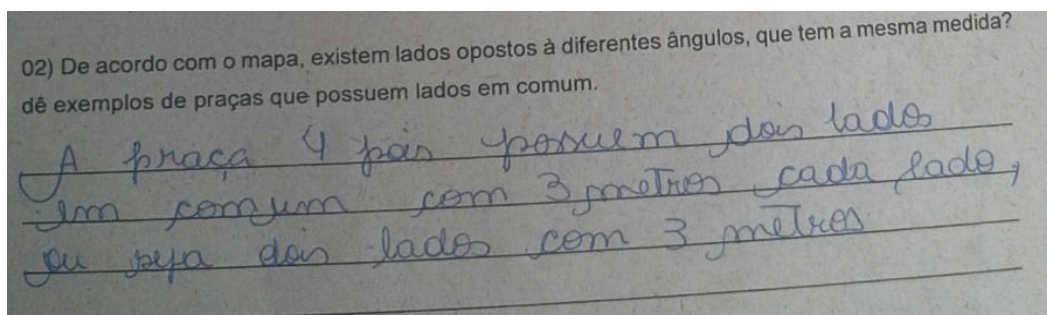 02) De acordo com o mapa, existem lados opostos à diferentes ângulos, que tem a mesma medida?
dê exemplos de praças que possuem lados em comum.
A praça 4 pois possuem dois lados
em comum com 3 metros cada lado,
ou seja dois lados com 3 metros